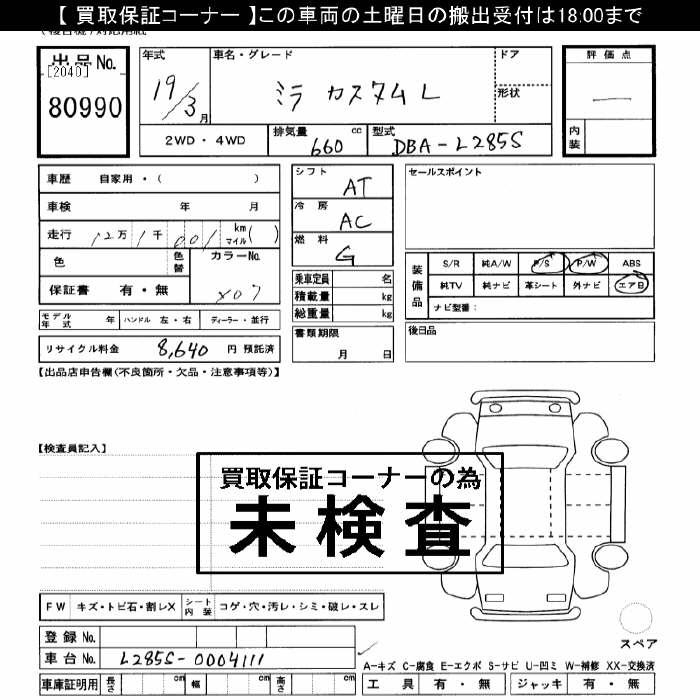 【 買取保証コーナー 】この車両の土曜日の搬出受付は18:00まで
出品No.
[2040]
80990
年式
19/3月
車名・グレード
ミラ カスタムL
ドア
形状
評価点
内装
2WD・4WD
排気量 660 cc
型式 DBA-L285S
車歴 自家用・( )
車検 年 月
走行 12万1千001 km マイル( )
色
色替
カラーNo.
X07
保証書 有・無
モデル年式 年
ハンドル 左・右
ディーラー・並行
リサイクル料金 8,640 円 預託済
シフト AT
冷房 AC
燃料 G
乗車定員 名
積載量 kg
総重量 kg
書類期限
月 日
セールスポイント
装備品
S/R 純A/W P/S P/W ABS
純TV 純ナビ 革シート 外ナビ エアB
ナビ型番:
後日品
【出品店申告欄(不良箇所・欠品・注意事項等)】
【検査員記入】
買取保証コーナーの為
未検査
FW キズ・トビ石・割レX
シート内装 コゲ・穴・汚レ・シミ・破レ・スレ
登録No.
車台No. L285S-0004111
車庫証明用 長さ cm 幅 cm 高さ cm
スペア
A-キズ C-腐食 E-エクボ S-サビ U-凹ミ W-補修 XX-交換済
工具 有・無 ジャッキ 有・無